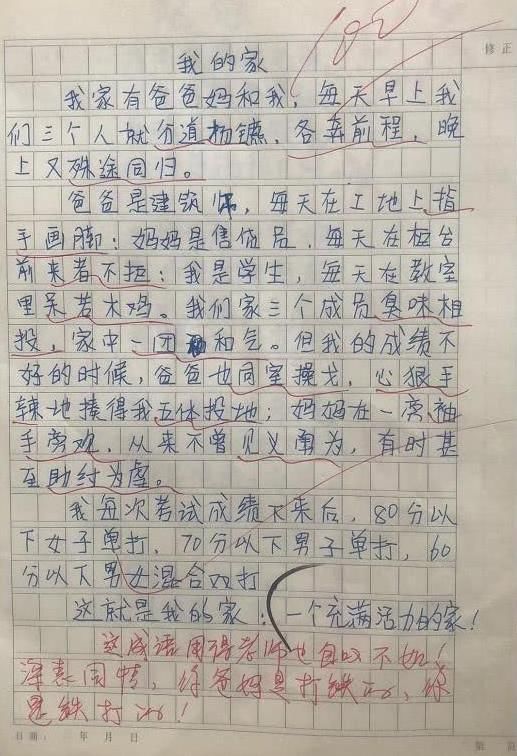 100
修正
我的家
我家有爸爸妈和我，每天早上我
们三个人就分道杨镳，各奔前程，晚
上又殊途同归。
爸爸是建筑师，每天在工地上指
手画脚；妈妈是售货员，每天在柜台
前来者不拒；我是学生，每天在教室
里呆若木鸡。我们家三个成员臭味相
投，家中一团和气。但我的成绩不
好的时候，爸爸也同室操戈，心狠手
辣地揍得我五体投地；妈妈在一旁袖
手旁观，从来不曾见义勇为，有时甚
至助纣为虐。
我每次考试成绩下来后，80分以
下女子单打，70分以下男子单打，60
分以下男女混合双打
这就是我的家：一个充满活力的家！
这成语用得老师也自叹不如！
深表同情，你爸妈是打铁的，你
是铁打的！
日期： 年 月 日
第 页